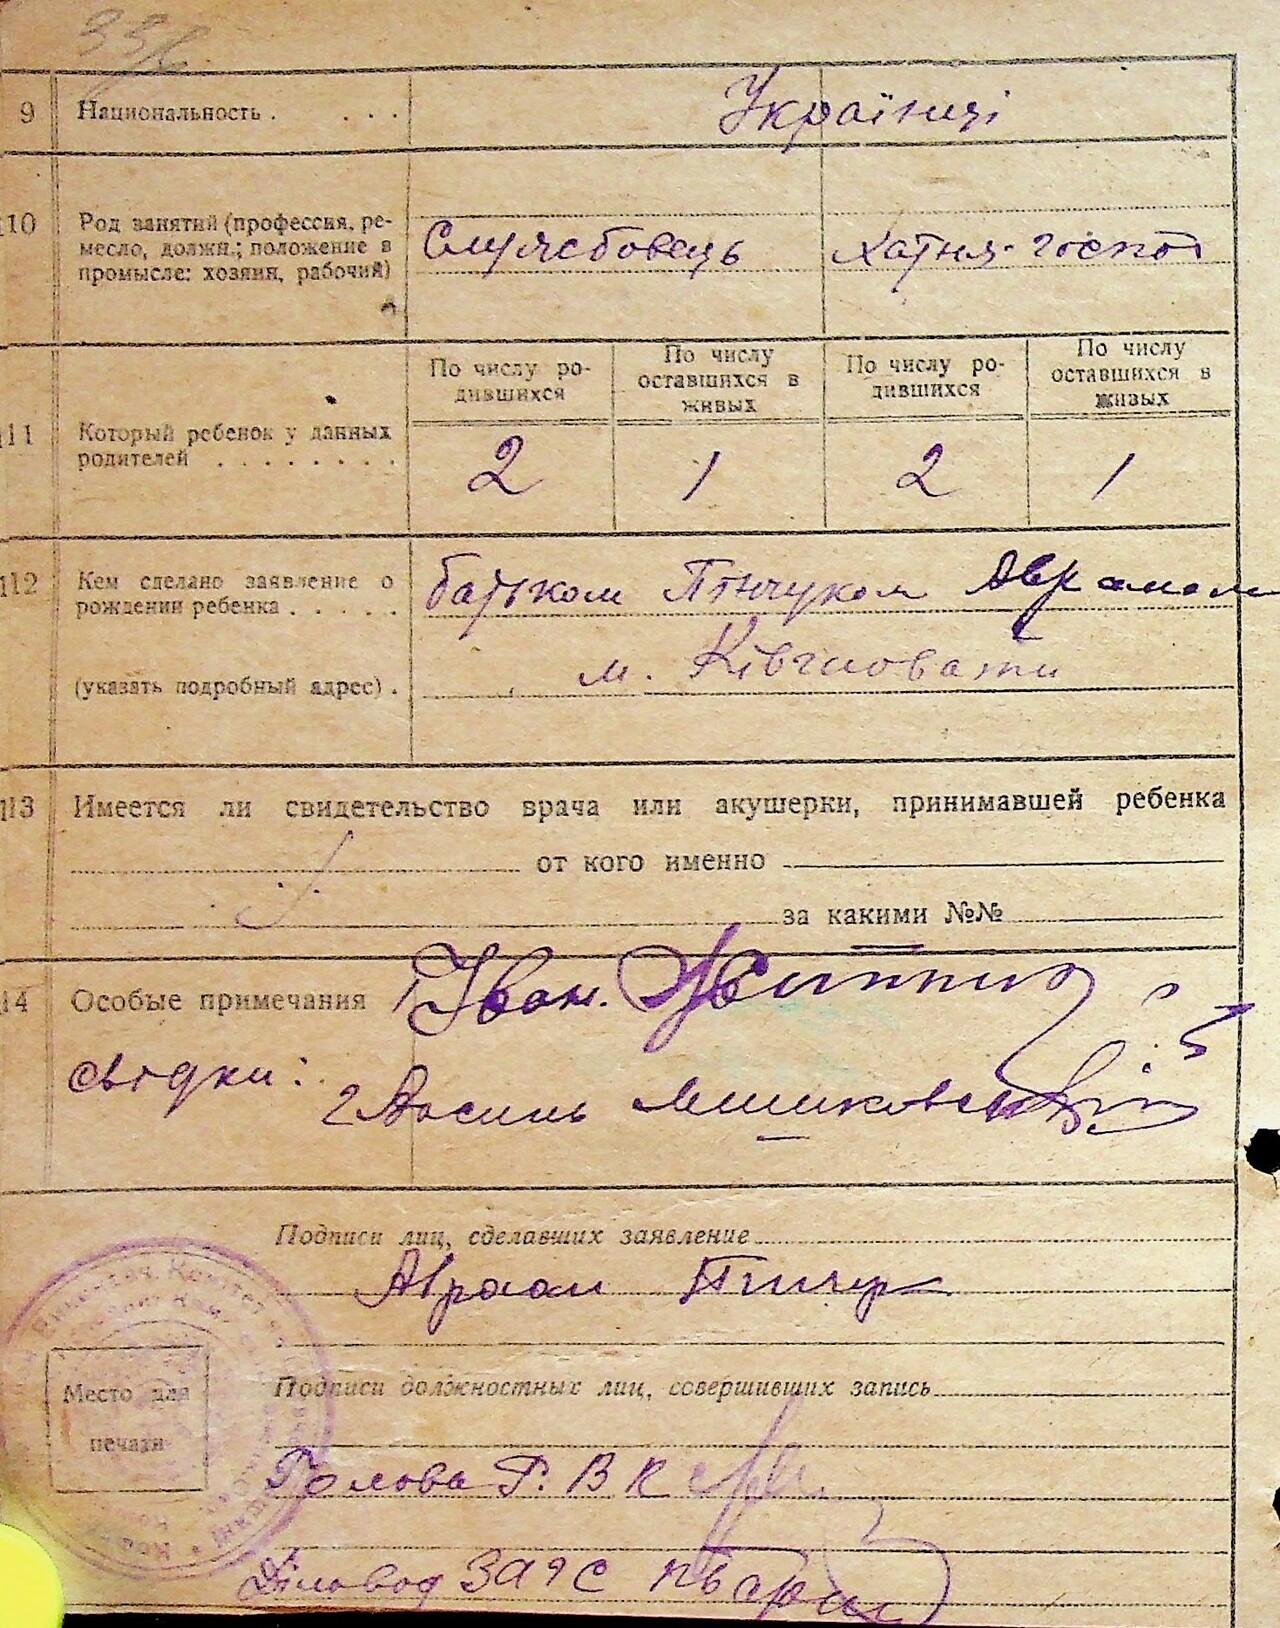 336
9 Национальность . . . . Українці
10 Род занятий (профессия, ре-
месло, должн.; положение в
промысле: хозяин, рабочий)
Службовець хатня-госпо
По числу ро-
дившихся
По числу
оставшихся в
живых
По числу ро-
дившихся
По числу
оставшихся в
живых
11 Который ребенок у данных
родителей . . . . . . . .
2 1 2 1
12 Кем сделано заявление о
рождении ребенка . . . . .
батьком Пінчуком Аврамом
(указать подробный адрес) .
м.
13 Имеется ли свидетельство врача или акушерки, принимавшей ребенка
от кого именно
за какими №№
14 Особые примечания 1 Іван.
свідки:
2
Подписи лиц, сделавших заявление
Авраам
Место для
печати
Подписи должностных лиц, совершивших запись
Голова Р. В К
Діловод ЗАГС